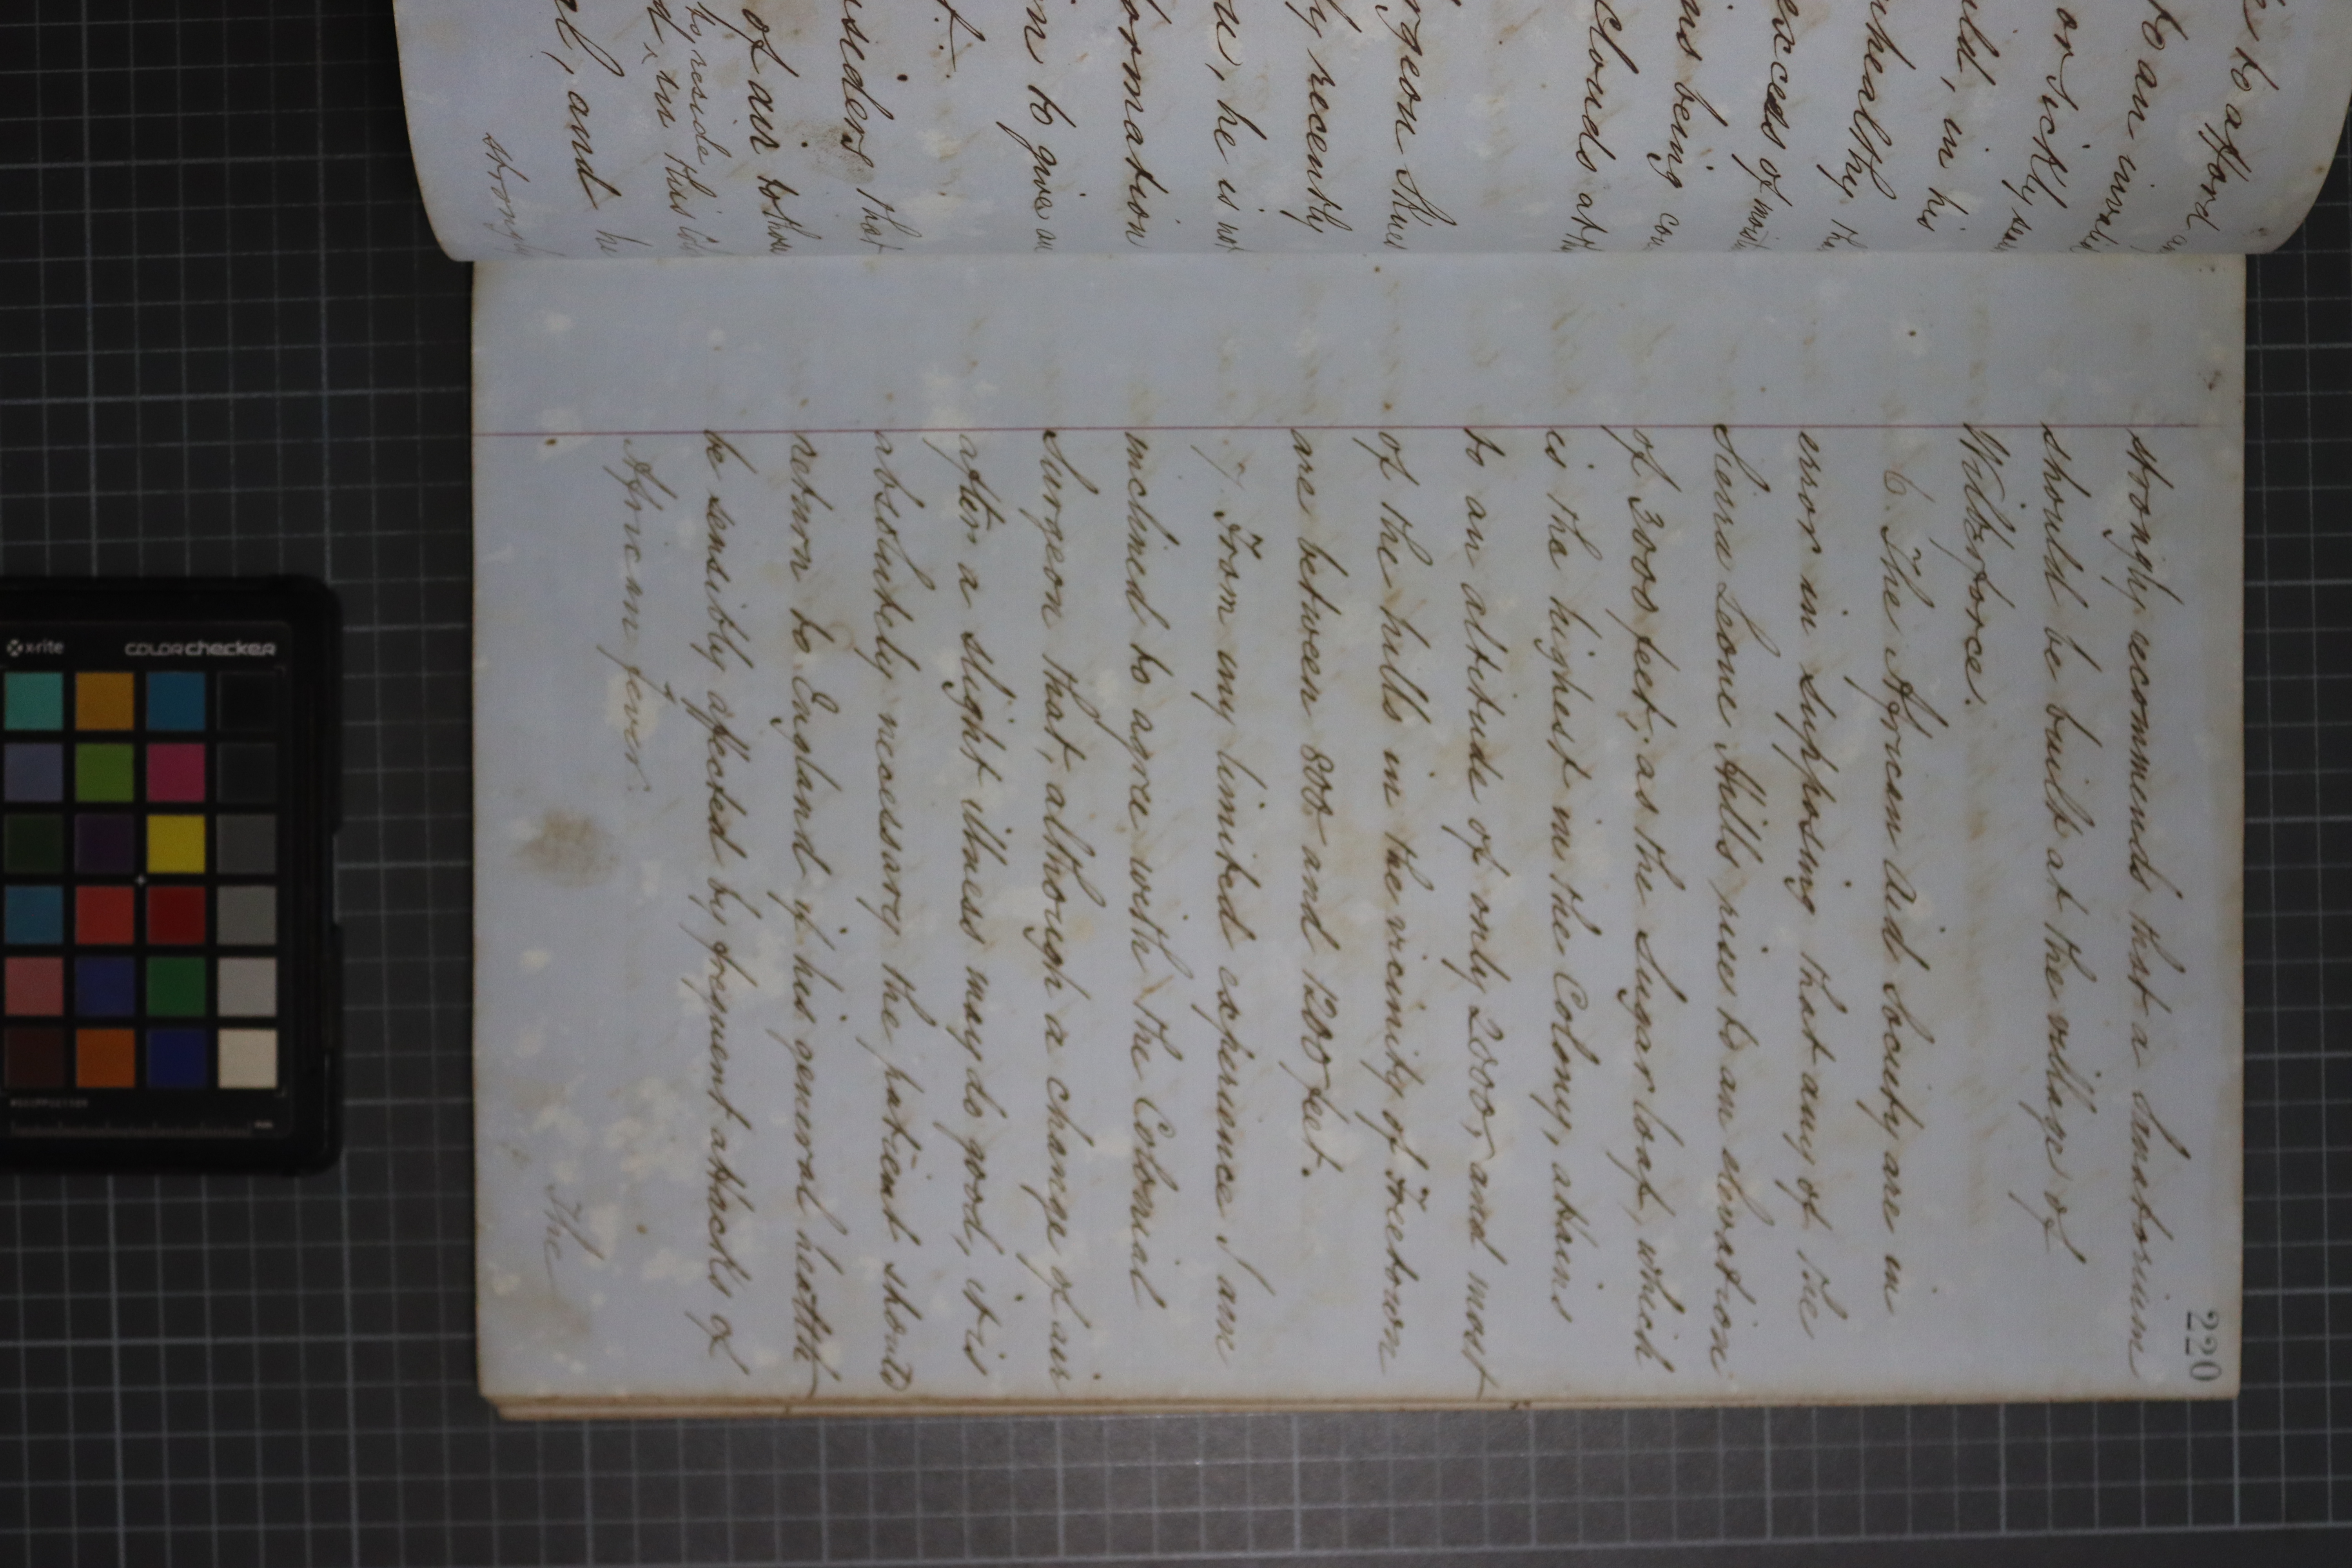 220
strongly recommends that a Sanatorium
should be built at the village of
Wilberforce.
6. The African Aid Society are in
error in supposing that any of the
Sierra Leone Hills rises to an elevation
of 3000 feet, as the Sugar loaf, which
is the highest in the Colony, attains
to an altitude of only 2000, and most
of the hills in the vicinity of Freetown
are between 800 and 1200 feet.
7. From my limited experience I am
inclined to agree with the Colonial
Surgeon that, although a change of air
after a slight illness may do good, it is
absolutely necessary the patient should
return to England if his general health
be sensibly affected by frequent attacks of
African fever.
The
to afford
to an
or sickly
in his
unhealthy
excess of
being
clouds
surgeon
recently
he is not
information
to give
that
of air
to reside this
and he
strongly
x-rite
colorchecker